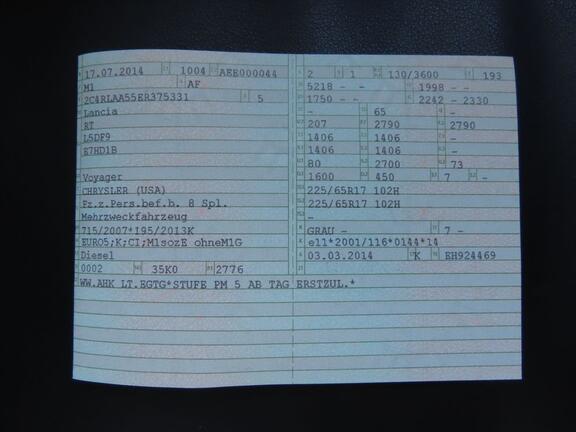 17.07.2014 1004 AEE000044
M1 AF
2C4RLAA55ER375331 5
Lancia
RT
L5DF9
E7HD1B
Voyager
CHRYSLER (USA)
Fz.z.Pers.bef.b. 8 Spl.
Mehrzweckfahrzeug
715/2007*195/2013K
EURO5;K;CI;M1sozE ohneM1G
Diesel
0002 35K0 2776
2 1 130/3600 193
5218 - - 1998 - -
1750 - - 2242 - 2330
- 65 -
207 2790 2790
1406 1406 -
1406 1406 -
80 2700 73
1600 450 7 -
225/65R17 102H
225/65R17 102H
-
GRAU - 7 -
e11*2001/116*0144*14
03.03.2014 K EH924469
WW.AHK LT.EGTG*STUFE PM 5 AB TAG ERSTZUL.*